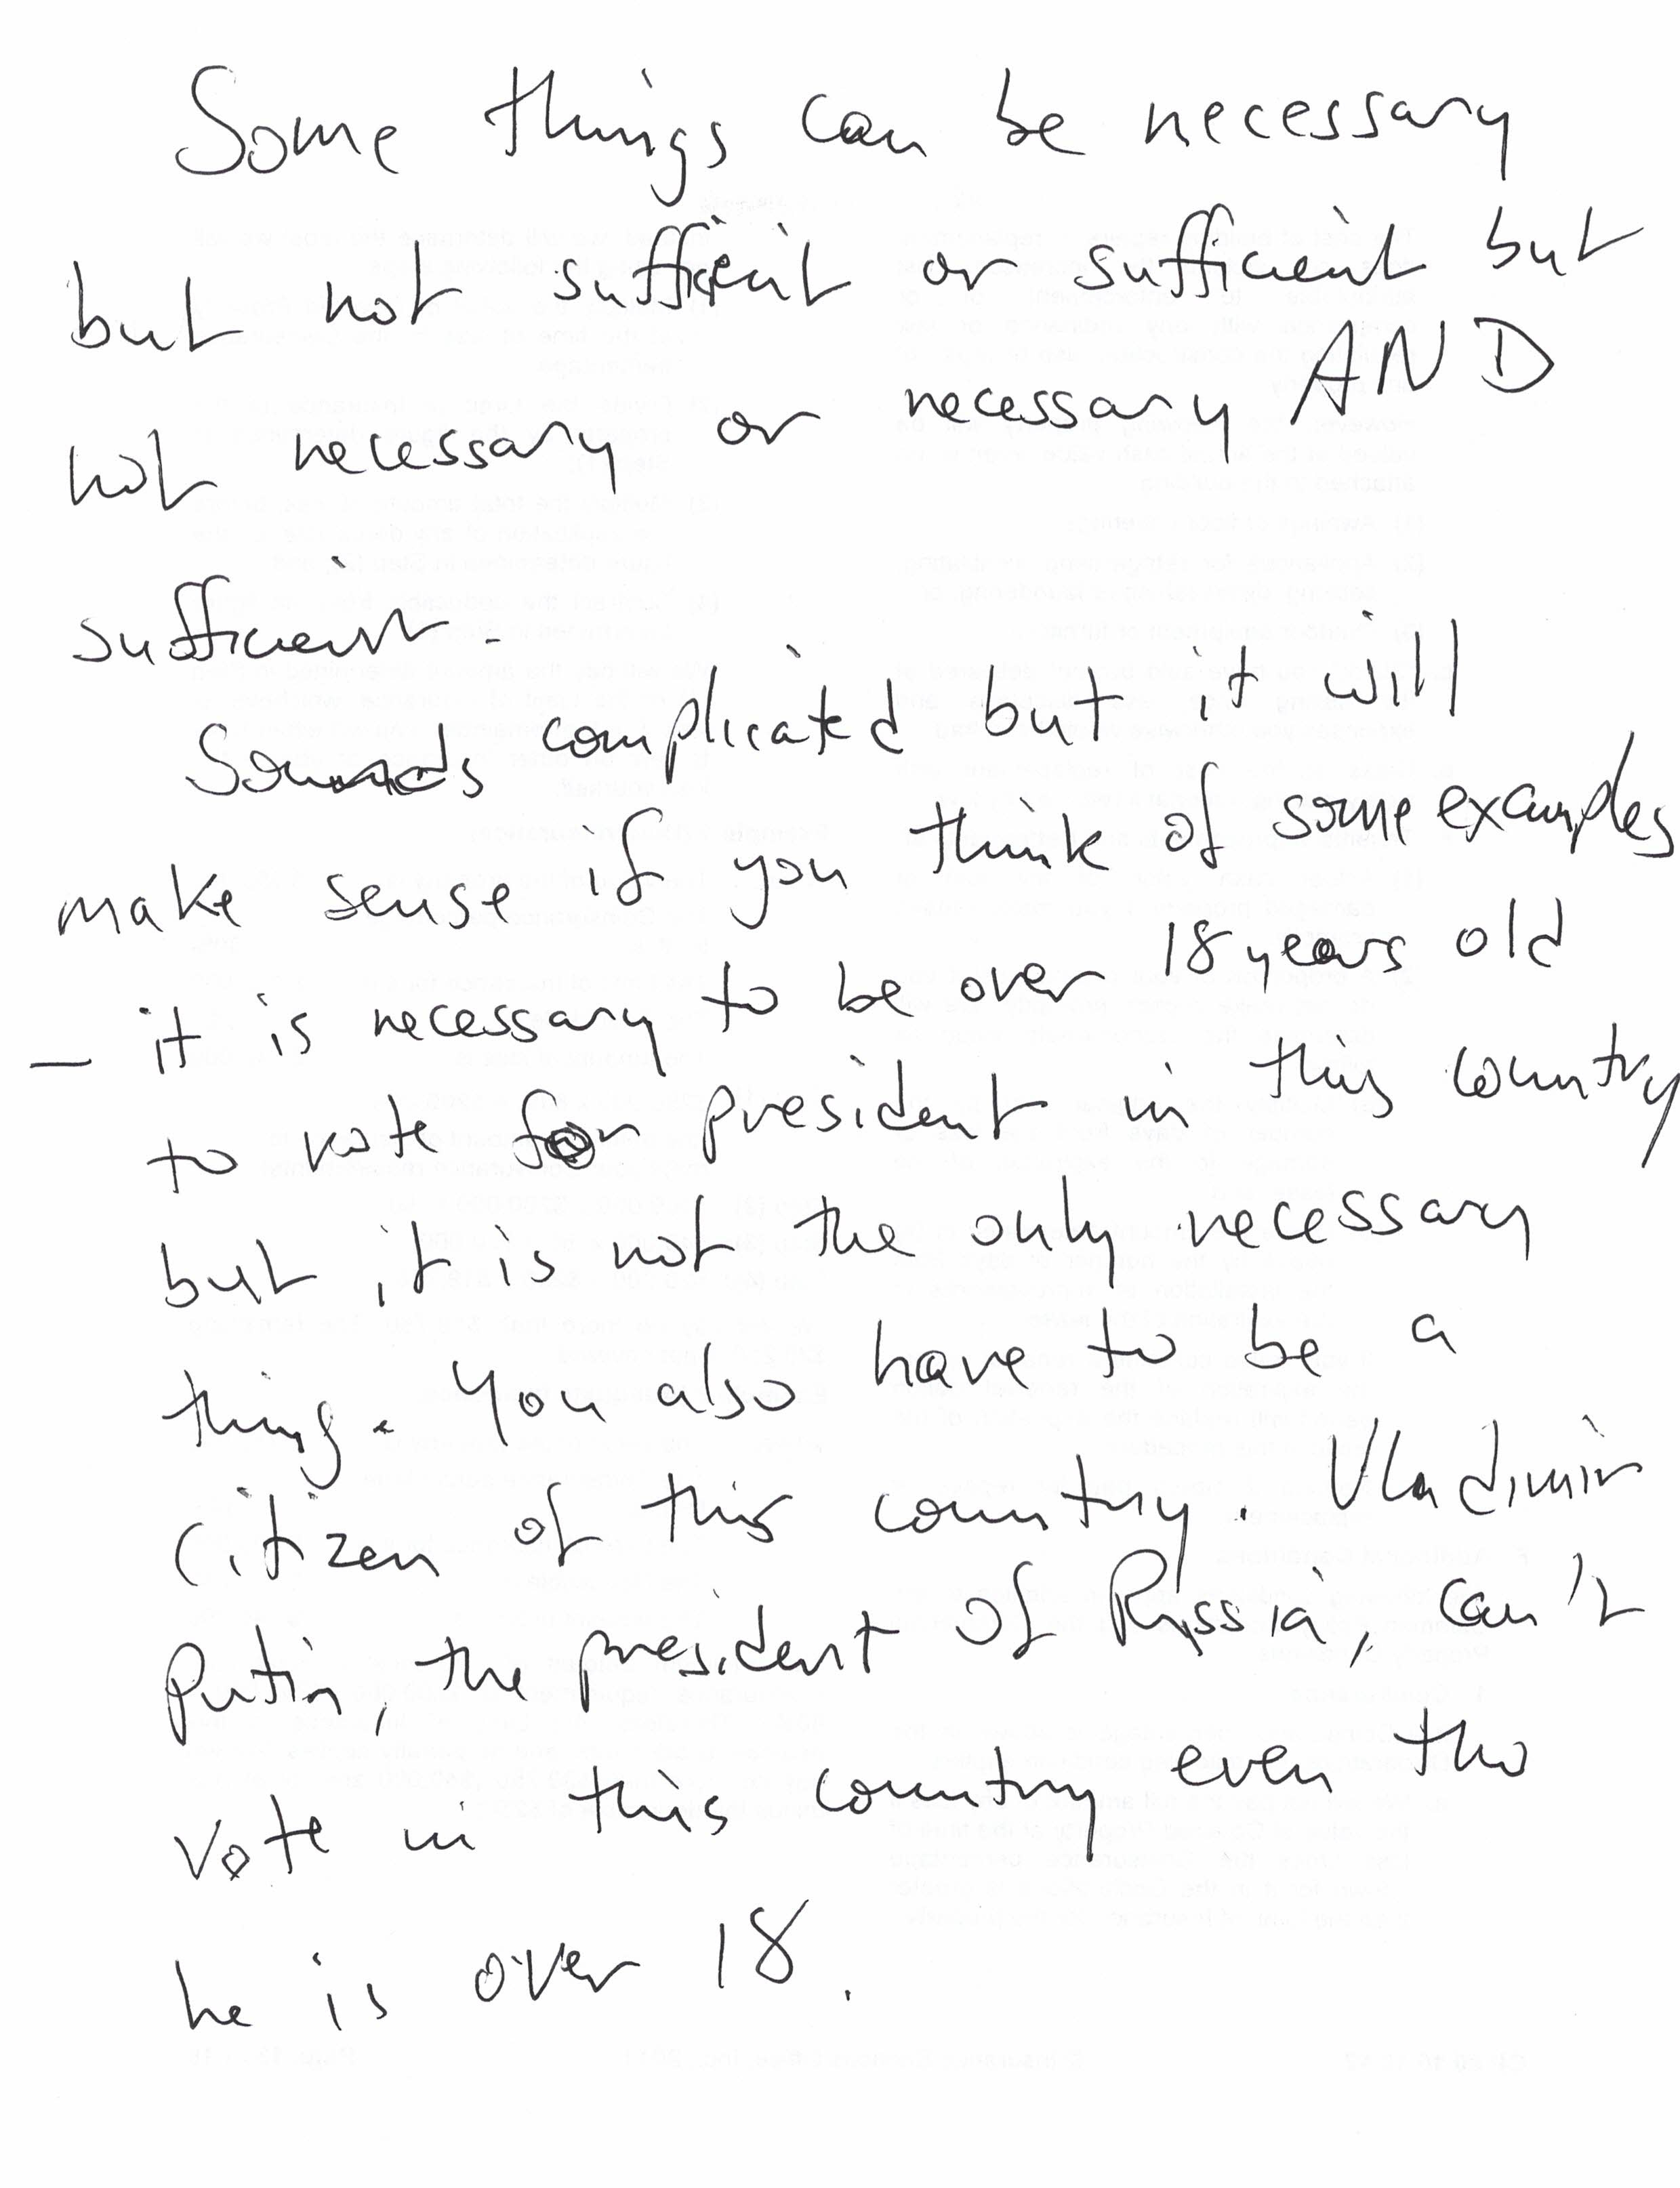 Some things can be necessary
but not sufficient or sufficient but
not necessary or necessary AND
sufficient.
Sounds complicated but it will
make sense if you think of some examples
— it is necessary to be over 18 years old
to vote for president in this country
but it is not the only necessary
thing. You also have to be a
citizen of this country. Vladimir
Putin, the president of Russia, can't
vote in this country even tho
he is over 18.